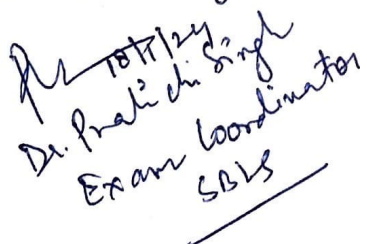 18/11/24
Dr. Prachi Singh
Exam Coordinator
SBLS